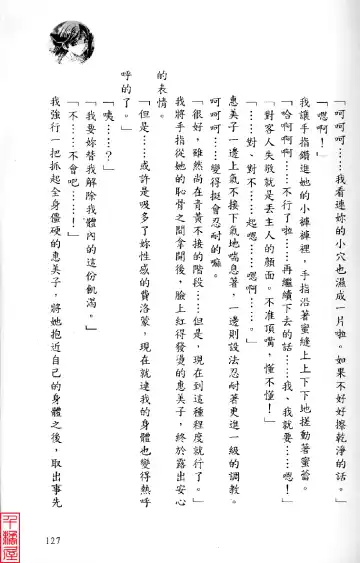 「呵呵呵……我看連妳的小穴也濕成一片啦。如果不好好擦乾淨的話。」
「嗯啊!」
我讓手指鑽進她的小褲褲裡，手指沿著蜜縫上上下下地搔動著蜜蕾。
「哈啊啊……不行了啦……再繼續下去的話……我、我就要……嗯!」
「對客人失敗就是丟主人的顏面。不准頂嘴，懂不懂!」
「……對、對不……起嗯……嗯啊……。」
惠美子一邊上氣不接下氣地喘息著，一邊則設法忍耐著更進一級的調教。
呵呵呵……變得挺會忍耐的嘛。
「很好，雖然尚在青黃不接的階段……但是，現在到這種程度就行了。」
我將手指從她的恥骨之間拿開後，臉上紅得發燙的惠美子，終於露出安心
的表情。
「但是……或許是吸多了妳性感的費洛蒙，現在就連我的身體也變得熱呼
呼的了。」
「咦……?」
「我要妳替我解除我體內的這份飢渴。」
「不……不會吧……!」
我強行一把抓起全身僵硬的惠美子，將她抱近自己的身體之後，取出事先
127
千鶴屋